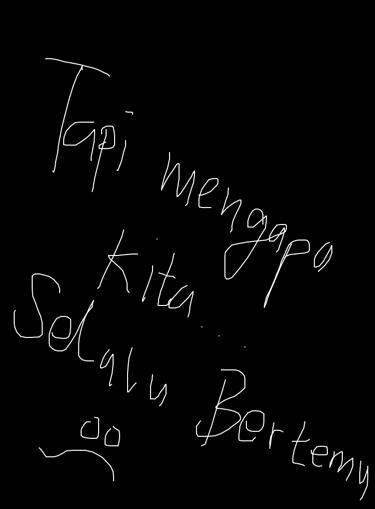 Tapi mengapa
kita...
Selalu Bertemu